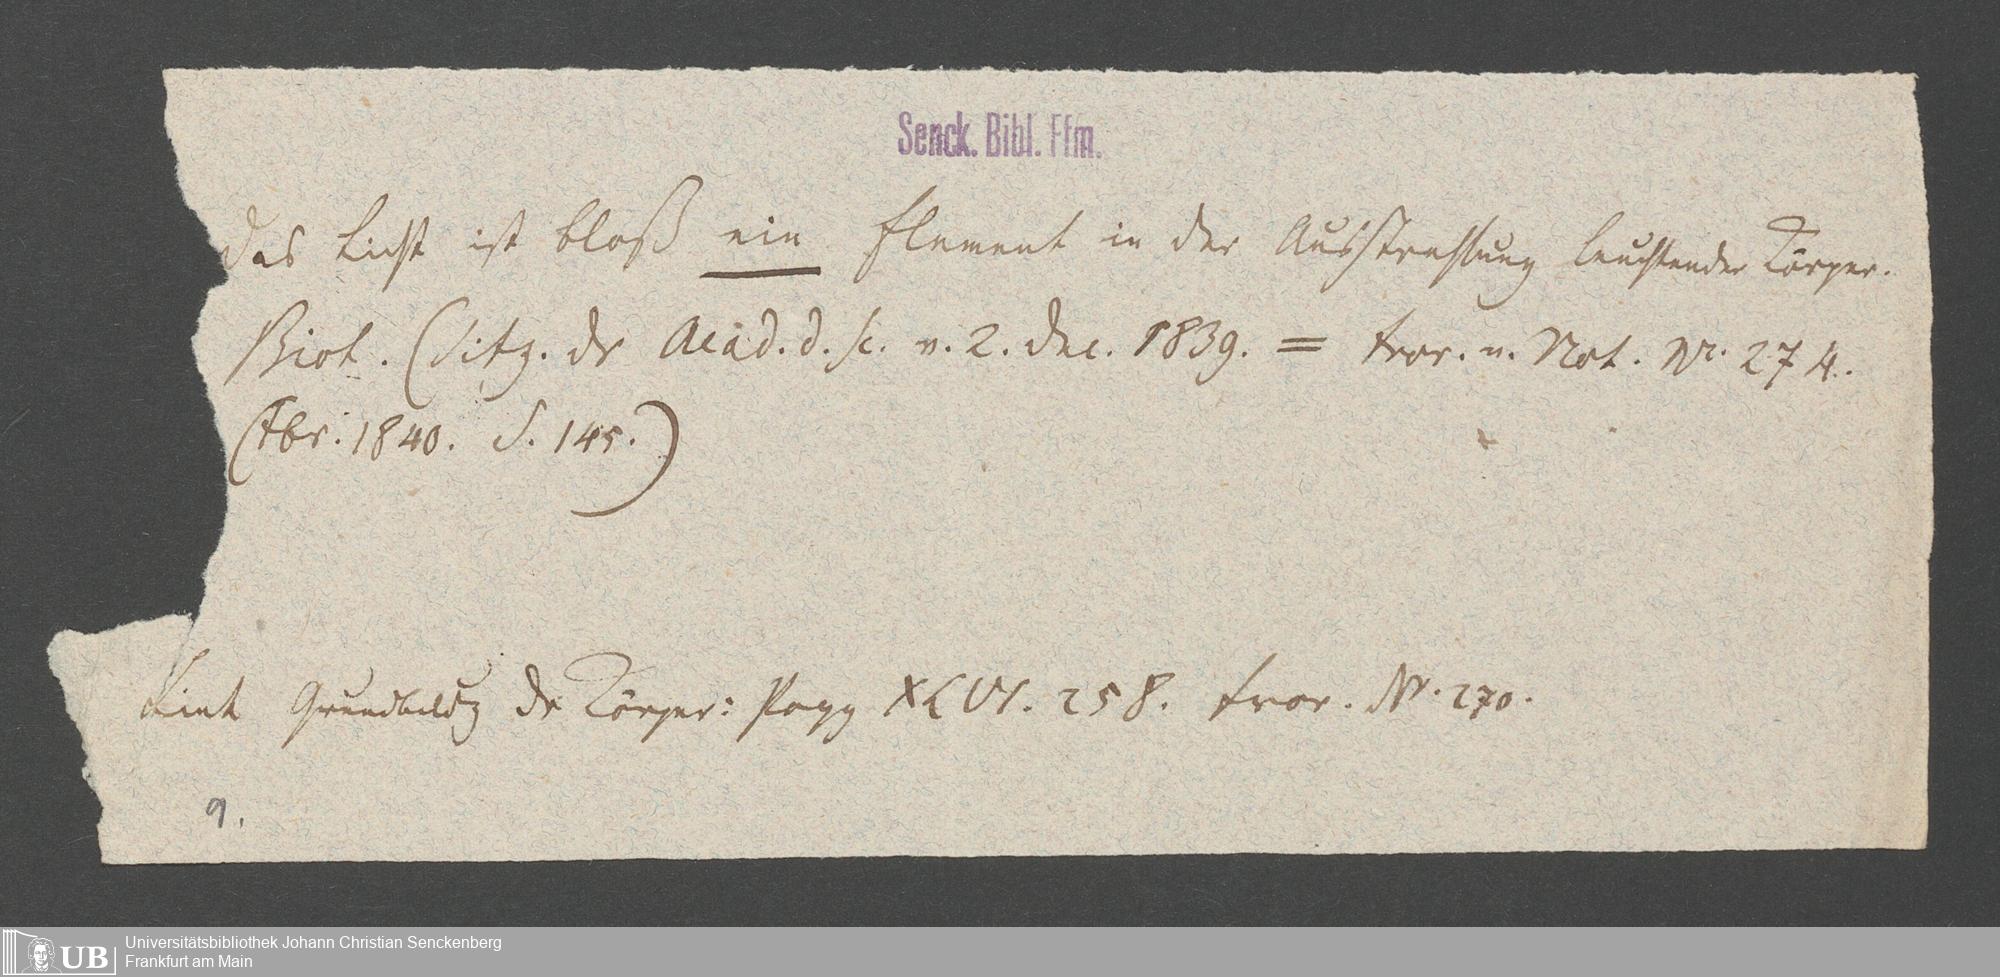 Senck. Bibl. Ffm.
Das Licht ist bloß ein Element in der Ausstrahlung leuchtender Körper.
Biot. (Sitz. der Acad. d. sc. v. 2. Dec. 1839. = Fror. n. Not. Nr. 274.
(Fbr. 1840. S. 145.)
Grundbildg der Körper: Pogg XLVI. 258. Fror. Nr. 270.
9.
UB
Universitätsbibliothek Johann Christian Senckenberg
Frankfurt am Main